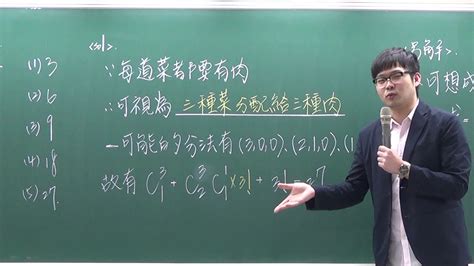 (1) 3
(2) 6
(3) 9
(4) 18
(5) 27.
<sol>.
∵每道菜都要有肉
∴可視為 三種菜分配給三種肉
—可能的分法有 (3,0,0)、(2,1,0)、(1
故有 C³₁ + C³₂ C¹₁ × 3! + 3! = 27
可想成